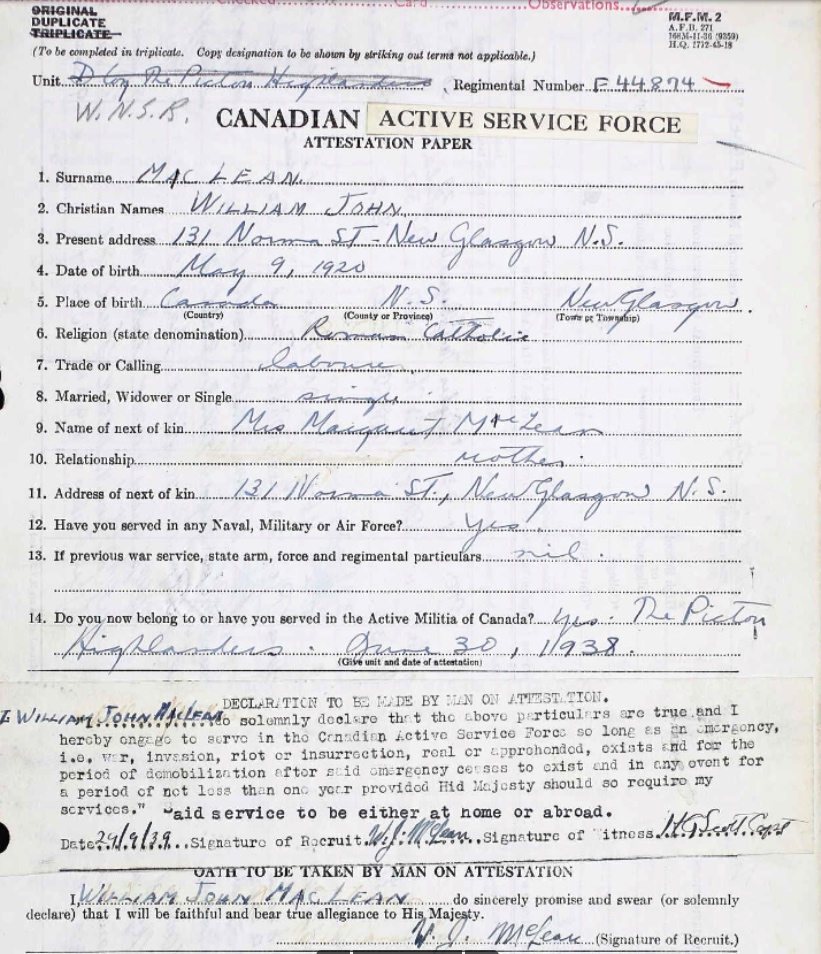 Checked Card Observations
ORIGINAL
DUPLICATE
TRIPLICATE
M.F.M. 2
A.F.B. 271
H.Q. 1772-45-18
(To be completed in triplicate. Copy designation to be shown by striking out terms not applicable.)
Unit D Coy The Pictou Highlanders, Regimental Number F 44874
W.N.S.R.
CANADIAN ACTIVE SERVICE FORCE
ATTESTATION PAPER
1. Surname MAC LEAN
2. Christian Names WILLIAM JOHN
3. Present address 131 Norma ST - New Glasgow N.S.
4. Date of birth May 9, 1920
5. Place of birth Canada N.S. New Glasgow
(Country) (County or Province) (Town or Township)
6. Religion (state denomination) Roman Catholic
7. Trade or Calling labourer
8. Married, Widower or Single single
9. Name of next of kin Mrs Margaret MacLean
10. Relationship mother
11. Address of next of kin 131 Norma ST., New Glasgow N.S.
12. Have you served in any Naval, Military or Air Force? Yes
13. If previous war service, state arm, force and regimental particulars nil.
14. Do you now belong to or have you served in the Active Militia of Canada? Yes. The Pictou
Highlanders. June 30, 1938.
(Give unit and date of attestation)
DECLARATION TO BE MADE BY MAN ON ATTESTATION.
I WILLIAM JOHN MACLEAN do solemnly declare that the above particulars are true and I
hereby engage to serve in the Canadian Active Service Force so long as an emergency,
i.e. war, invasion, riot or insurrection, real or apprehended, exists and for the
period of demobilization after said emergency ceases to exist and in any event for
a period of not less than one year provided Hid Majesty should so require my
services." "aid service to be either at home or abroad.
Date 29/9/39 Signature of Recruit W.J. McLean Signature of Witness H G Scott Capt
OATH TO BE TAKEN BY MAN ON ATTESTATION
I, WILLIAM JOHN MACLEAN do sincerely promise and swear (or solemnly
declare) that I will be faithful and bear true allegiance to His Majesty.
W. J. McLean (Signature of Recruit.)